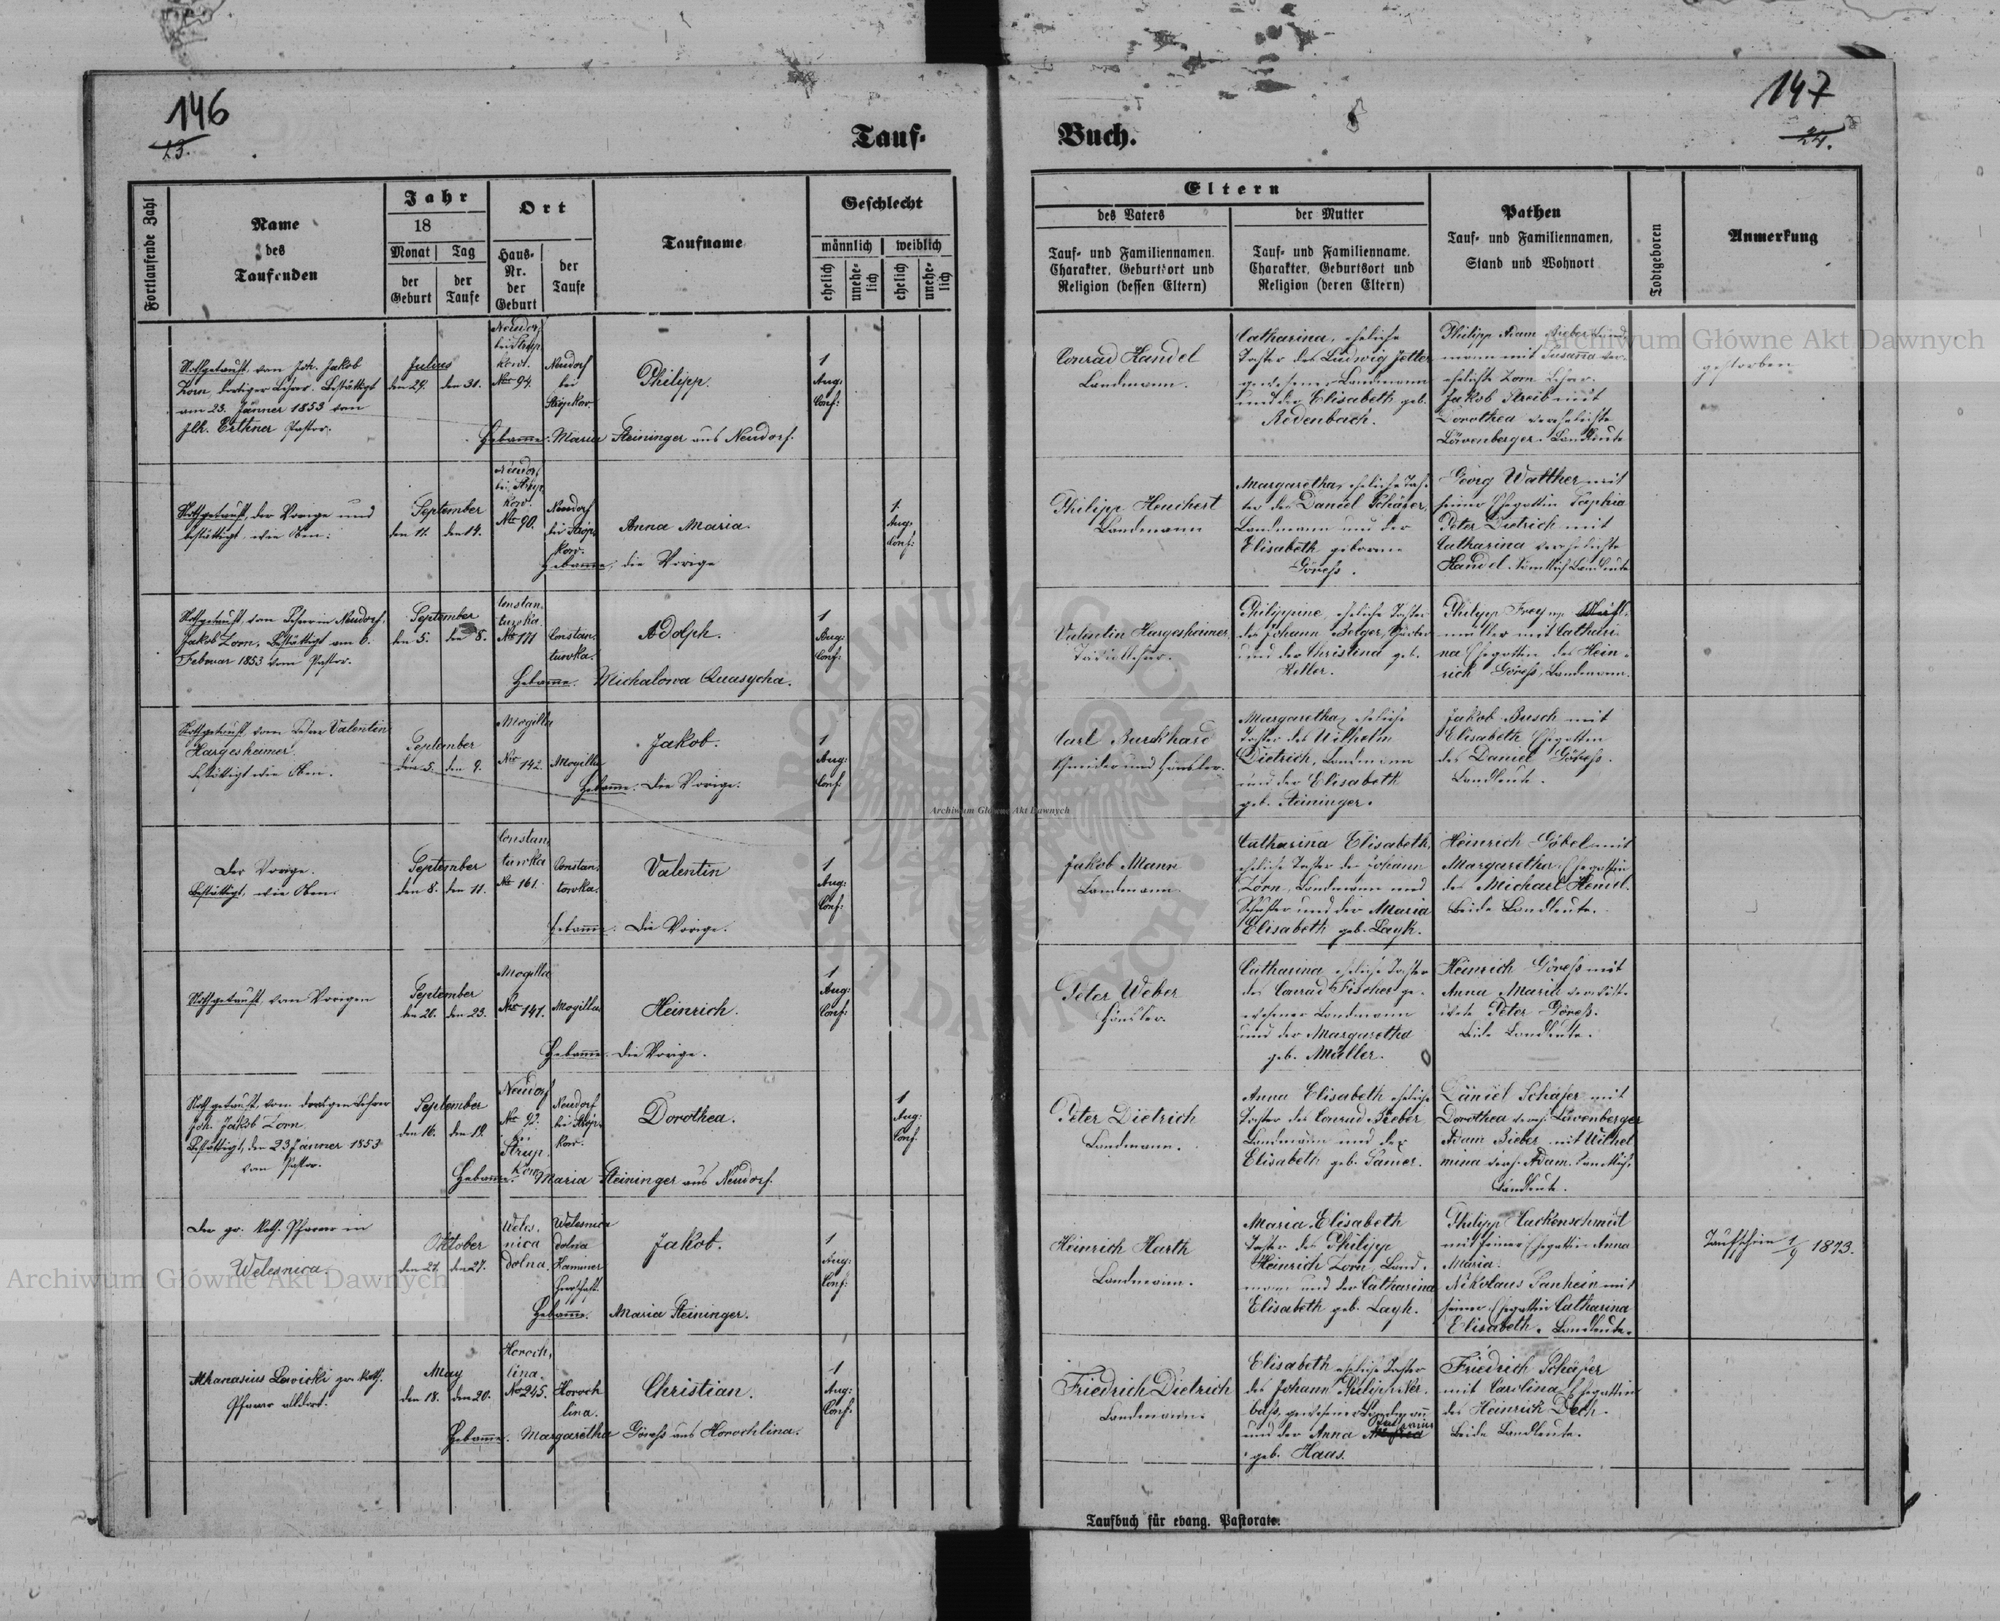 146
23.
Tauf-
Fortlaufende Zahl
Name
des
Taufenden
Jahr
18
Monat
Tag
der
Geburt
der
Taufe
Ort
Haus-
Nr.
der
Geburt
der
Taufe
Taufname
Geschlecht
männlich
weiblich
ehelich
unehe-
lich
ehelich
unehe-
lich
Nothgetauft, von Joh. Jakob
Zorn dortiger Lehrer. Bestättigt
am 23. Jänner 1853 von
Pastor.
Julius
den 29. den 31.
Neudorf
bei Strup
kow.
Nro 94.
Neudorf
bei
Strópkow.
Philipp.
1
Aug:
Conf:
Hebamme. Maria Steininger aus Neudorf.
Nothgetauft, der Vorige und
bestättigt wie Oben.
September
den 11. den 14.
Neudorf
bei Strup
kow.
Nro 90.
Neudorf
bei Stróp
kow.
Anna Maria.
1.
Aug:
Conf:
Hebamme. die Vorige
Nothgetauft, vom Lehrer in Neudorf.
Jakob Zorn. Bestättigt am 6.
Februar 1853 vom Pastor.
September
den 5. den 8.
Constan
tuwka.
No 171
Constan
tuwka.
Adolph.
1
Aug:
Conf:
Hebamme. Michalowa Quasycha.
Nothgetauft vom Lehrer Valentin
Hargesheimer.
bestättigt wie Oben.
September
den 5. den 9.
Mogilla
Nro 142.
Mogilla
Jakob.
1
Aug:
Conf:
Hebamme. Die Vorige.
Der Vorige.
Bestättigt, wie Oben.
September
den 8. den 11.
Constan
tuwka
No 161.
Constan
towka.
Valentin
1
Aug:
Conf:
Hebamme. Die Vorige.
Nothgetauft, vom Vorigen
September
den 20. den 23.
Mogilla
Nro 141.
Mogilla
Heinrich.
1
Aug:
Conf:
Hebamme. Die Vorige.
Nothgetauft, vom dortigen Lehrer
Joh. Jakob Zorn
Bestättigt, den 23 Jänner 1853
vom Pastor.
September
den 16. den 19.
Neudorf
Nro 92.
bei
Strup
kow
Neudorf
bei Stróp
kow.
Dorothea.
1
Aug:
Conf
Hebamme. Maria Steininger aus Neudorf.
Der gr. Kath. Pfarrer in
Welesnica.
Oktober
den 21. den 27.
Weles
nica
dolna.
Welesnica
dolna
Kammer
Herrschaft.
Jakob.
1
Aug:
Conf:
Hebamme. Maria Steininger.
Athanasius Lewicki gr. Kath.
Pfarrer alldort.
May
den 18. den 20.
Horoch,
lina.
No 245.
Horoch
lina.
Christian.
1
Aug:
Conf:
Hebamme. Margaretha Göress aus Horochlina.
147
24.
Buch.
Eltern
des Vaters
der Mutter
Tauf- und Familiennamen.
Charakter, Geburtsort und
Religion (dessen Eltern)
Tauf- und Familienname.
Charakter, Geburtsort und
Religion (deren Eltern)
Pathen
Tauf- und Familiennamen,
Stand und Wohnort
Todtgeboren
Anmerkung
Conrad Handel
Landmann.
Catharina, eheliche
Tochter des Ludwig Jetter
gewesener Landmann
und der Elisabeth geb.
Rodenbach.
Philipp Adam Bieber Land
mann mit Susana ver
ehelichte Zorn Lehrer.
Jakob Streib mit
Dorothea verehelichte
Löwenberger. Landleute
gestorben
Philipp Heuchert
Landmann
Margaretha, eheliche Toch
ter des Daniel Schäfer,
Landmann und der
Elisabeth geborene
Göress.
Georg Walther mit
seiner Ehegattin Sophia
Peter Dietrich mit
Catharina verehelichte
Handel. Sämtlich Landleute
Valentin Hargesheimer
Philippine, eheliche Tochter
des Johann Bolger,
und der Christina geb.
Keller.
Philipp Frey
müller mit Cathari
na Ehegattin des Hein
rich Göress, Landmann.
Carl Burkhard
Schneider und Häusler.
Margaretha, eheliche
Tochter des Wilhelm
Dietrich, Landmann
und der Elisabeth
geb. Steininger.
Jakob Busch mit
Elisabeth Ehegattin
des Daniel Göress.
Landleute.
Jakob Mann
Landmann
Catharina Elisabeth,
eheliche Tochter des Johann
Zorn, Landmann und
Schuster und der Maria
Elisabeth geb. Layh.
Heinrich Göbel mit
Margaretha Ehegattin
des Michael Hensel.
Beide Landleute.
Peter Weber
Häusler.
Catharina eheliche Tochter
des Conrad Fischer ge
wesener Landmann
und der Margaretha
geb. Müller.
Heinrich Göress mit
Anna Maria verwitt
wete Peter Göress.
Beide Landleute.
Peter Dietrich
Landmann.
Anna Elisabeth eheliche
Tochter des Conrad Bieber
Landmann und der
Elisabeth geb. Sauer.
Daniel Schäfer mit
Dorothea vereh. Löwenberger
Adam Bieber mit Wilhel
mina vereh. Adam. Sämtlich
Landleute.
Heinrich Harth
Landmann.
Maria Elisabeth
Tochter des Philipp
Heinrich Zorn, Land
mann und der Catharina
Elisabeth geb. Layh.
Philipp Huckenschmidt
mit seiner Ehegattin Anna
Maria.
Nikolaus Sanheim mit
seiner Ehegattin Catharina
Elisabeth. Landleute.
Taufschein 1/9 1873.
Friedrich Dietrich
Landmann.
Elisabeth eheliche Tochter
des Johann Philipp
gewesener Landmann
und der Anna
geb. Haas.
Friedrich Schäfer
mit Carolina Ehegattin
des Heinrich Dech.
Beide Landleute.
Taufbuch für evang. Pastorate.
Archiwum Główne Akt Dawnych
Archiwum Główne Akt Dawnych
Archiwum Główne Akt Dawnych